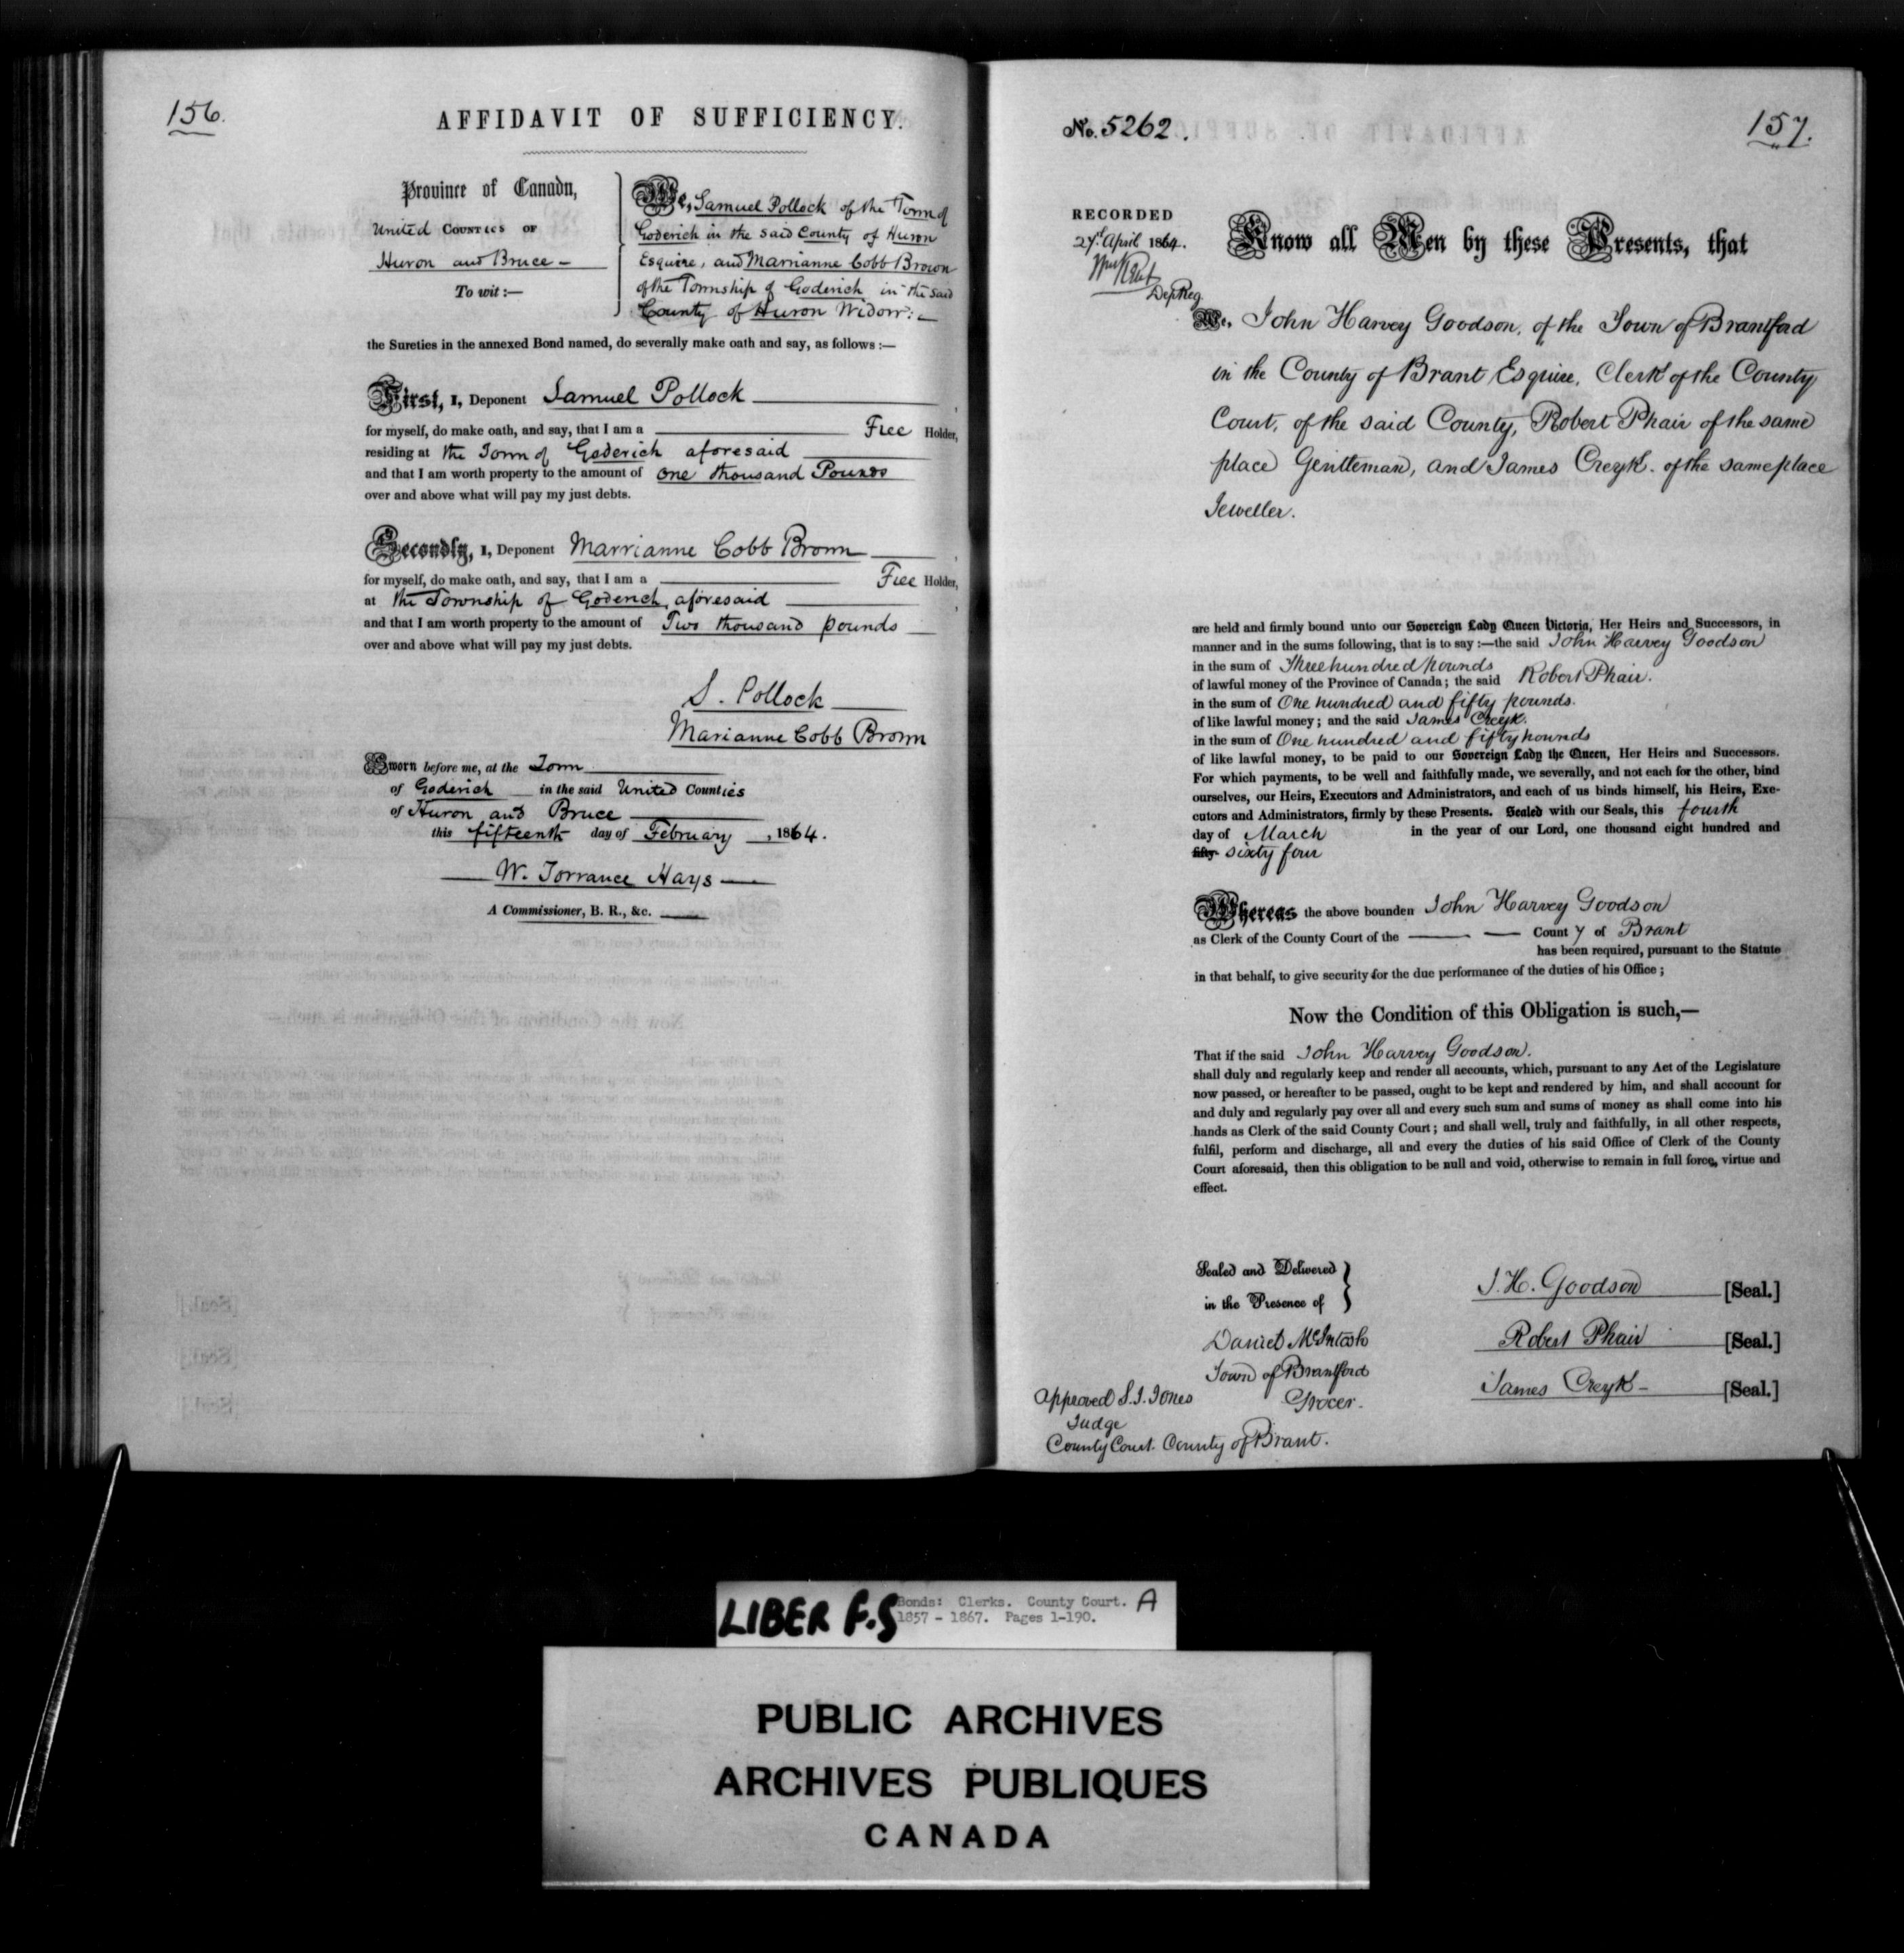 156.
AFFIDAVIT OF SUFFICIENCY.
Province of Canada,
United COUNTIES OF
Huron and Bruce —
To wit:—
We, Samuel Pollock of the Town of
Goderich in the said County of Huron
Esquire, and Marrianne Cobb Brown
of the Township of Goderich in the said
County of Huron Widow: —
the Sureties in the annexed Bond named, do severally make oath and say, as follows :—
First, I, Deponent Samuel Pollock ,
for myself, do make oath, and say, that I am a Free Holder,
residing at the Town of Goderich aforesaid
and that I am worth property to the amount of One thousand Pounds
over and above what will pay my just debts.
Secondly, I, Deponent Marrianne Cobb Brown ,
for myself, do make oath, and say, that I am a Free Holder,
at the Township of Goderich, aforesaid ,
and that I am worth property to the amount of Two thousand pounds
over and above what will pay my just debts.
S. Pollock
Marianne Cobb Brown
Sworn before me, at the Town
of Goderich in the said United Counties
of Huron and Bruce
this fifteenth day of February , 1864.
W. Torrance Hays
A Commissioner, B. R., &c.
No. 5262.
157.
RECORDED
27th April 1864.
Dep Reg
Know all Men by these Presents, that
We, John Harvey Goodson, of the Town of Brantford
in the County of Brant Esquire, Clerk of the County
Court, of the said County, Robert Phair of the same
place Gentleman, and James Creyk. of the same place
Jeweller.
are held and firmly bound unto our Sovereign Lady Queen Victoria, Her Heirs and Successors, in
manner and in the sums following, that is to say :—the said John Harvey Goodson
in the sum of Three hundred pounds
of lawful money of the Province of Canada; the said Robert Phair.
in the sum of One hundred and fifty pounds.
of like lawful money; and the said James Creyk.
in the sum of One hundred and fifty pounds
of like lawful money, to be paid to our Sovereign Lady the Queen, Her Heirs and Successors.
For which payments, to be well and faithfully made, we severally, and not each for the other, bind
ourselves, our Heirs, Executors and Administrators, and each of us binds himself, his Heirs, Exe-
cutors and Administrators, firmly by these Presents. Sealed with our Seals, this fourth
day of March in the year of our Lord, one thousand eight hundred and
fifty sixty four
Whereas the above bounden John Harvey Goodson
as Clerk of the County Court of the — — County of Brant
has been required, pursuant to the Statute
in that behalf, to give security for the due performance of the duties of his Office;
Now the Condition of this Obligation is such,—
That if the said John Harvey Goodson.
shall duly and regularly keep and render all accounts, which, pursuant to any Act of the Legislature
now passed, or hereafter to be passed, ought to be kept and rendered by him, and shall account for
and duly and regularly pay over all and every such sum and sums of money as shall come into his
hands as Clerk of the said County Court; and shall well, truly and faithfully, in all other respects,
fulfil, perform and discharge, all and every the duties of his said Office of Clerk of the County
Court aforesaid, then this obligation to be null and void, otherwise to remain in full force, virtue and
effect.
Sealed and Delivered
in the Presence of
Daniel McIntosh
Town of Brantford
Grocer.
J. H. Goodson [Seal.]
Robert Phair [Seal.]
James Creyk — [Seal.]
Approved S. J. Jones
Judge
County Court. County of Brant.
LIBER F.S
Bonds: Clerks. County Court. A
1857 - 1867. Pages 1-190.
PUBLIC ARCHIVES
ARCHIVES PUBLIQUES
CANADA